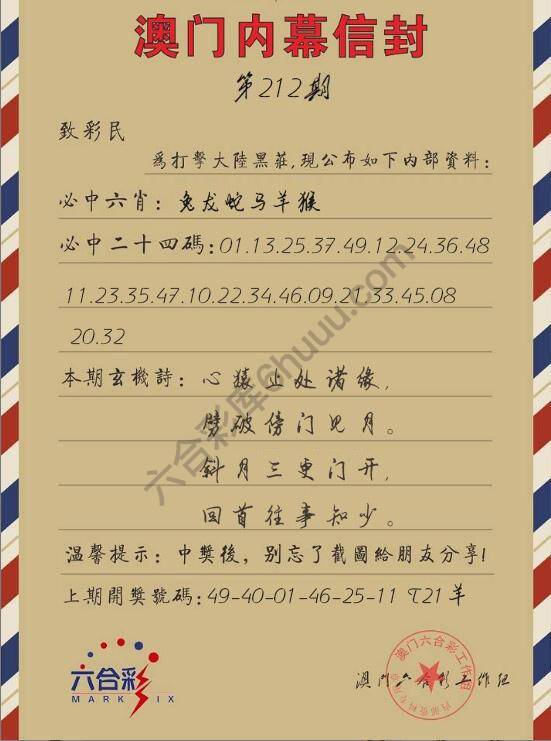 澳门内幕信封
第212期
致彩民
爲打擊大陸黑莊,現公布如下内部資料:
必中六肖:兔龙蛇马羊猴
必中二十四碼:01.13.25.37.49.12.24.36.48
11.23.35.47.10.22.34.46.09.21.33.45.08
20.32
本期玄機詩:心猿止处诸缘,
劈破傍门见月。
斜月三更门开,
回首往事知少。
温馨提示:中獎後,别忘了截圖給朋友分享!
上期開獎號碼:49-40-01-46-25-11 T21羊
六合彩
MARK SIX
澳门六合彩工作组
澳门六合彩工作组
六合彩库6huuu.com